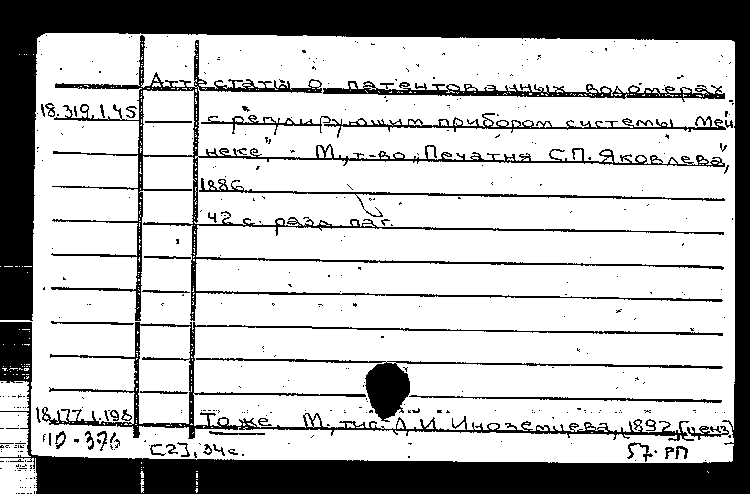 Аттестаты о патентованных водомерах
18.319.1.45 с регулирующим прибором системы „Мей
неке". - М., т-во „Печатня С.П. Яковлева",
1886.
42 с. разд. паг.
18.177.1.198 То же. М., тип. Д.И. Иноземцева, 1892 [ценз]
10-376 [2], 34 с. 57. РП